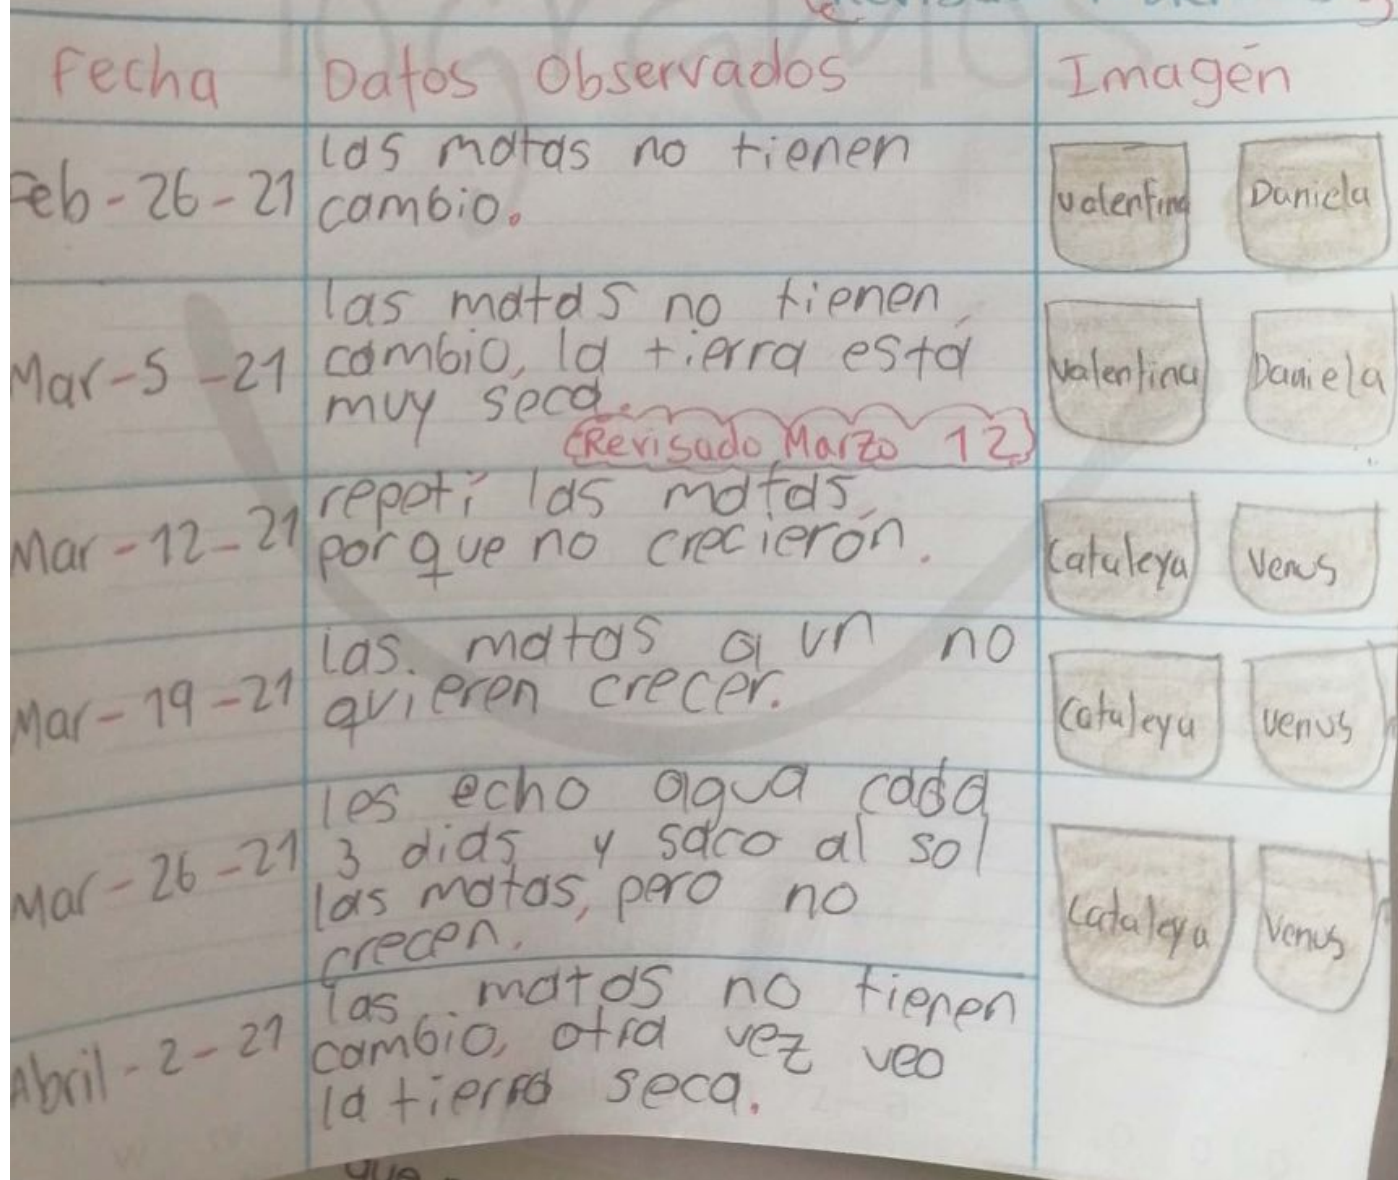 Fecha Datos Observados Imagén
Feb-26-21
las matas no tienen
cambio.
Valentina Daniela
Mar-5-21
las matas no tienen
cambio, la tierra está
muy seca.
(Revisado Marzo 12)
Valentina Daniela
Mar-12-21
repeti las matas,
porque no crecierón.
Cataleya Venus
Mar-19-21
las. matas a un no
quieren crecer.
Cataleya Venus
Mar-26-21
les echo agua cada
3 dias y saco al sol
las matas, pero no
crecen.
Cataleya Venus
Abril-2-21
las matas no tienen
cambio, otra vez veo
la tierra seca.